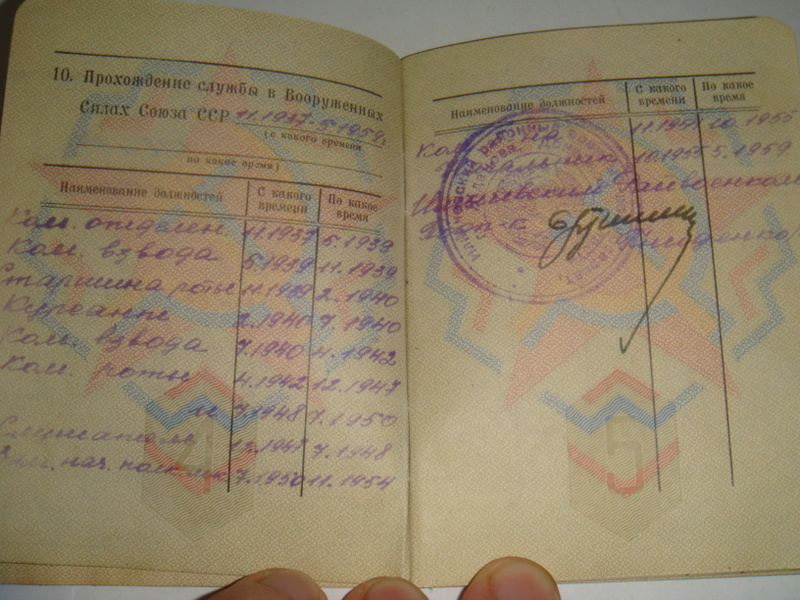 10. Прохождение службы в Вооруженных
Силах Союза ССР 11.1937-5.1959г.
(с какого времени
по какое время)
Наименование должностей С какого времени По какое время
Ком. отделен. 11.1937 5.1939
Ком. взвода 5.1939 11.1939
Старшина роты 11.1939 2.1940
Курсант 2.1940 7.1940
Ком. взвода 7.1940 4.1942
Ком. роты 4.1942 12.1947
" 7.1948 7.1950
Слушатель 12.1947 7.1948
нач. 7.1950 11.1954
4
Наименование должностей С какого времени По какое время
11.1954 10.1955
10.1955 5.1959
Райвоенком
5